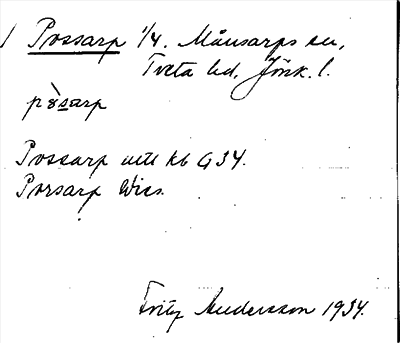 Possarp 1/4. Månsarps sn,
Tveta hd, Jönk. l.
pò̀sarp
Possarp utt kb G 34.
Porsarp Wies.
Fritz Andersson 1934.